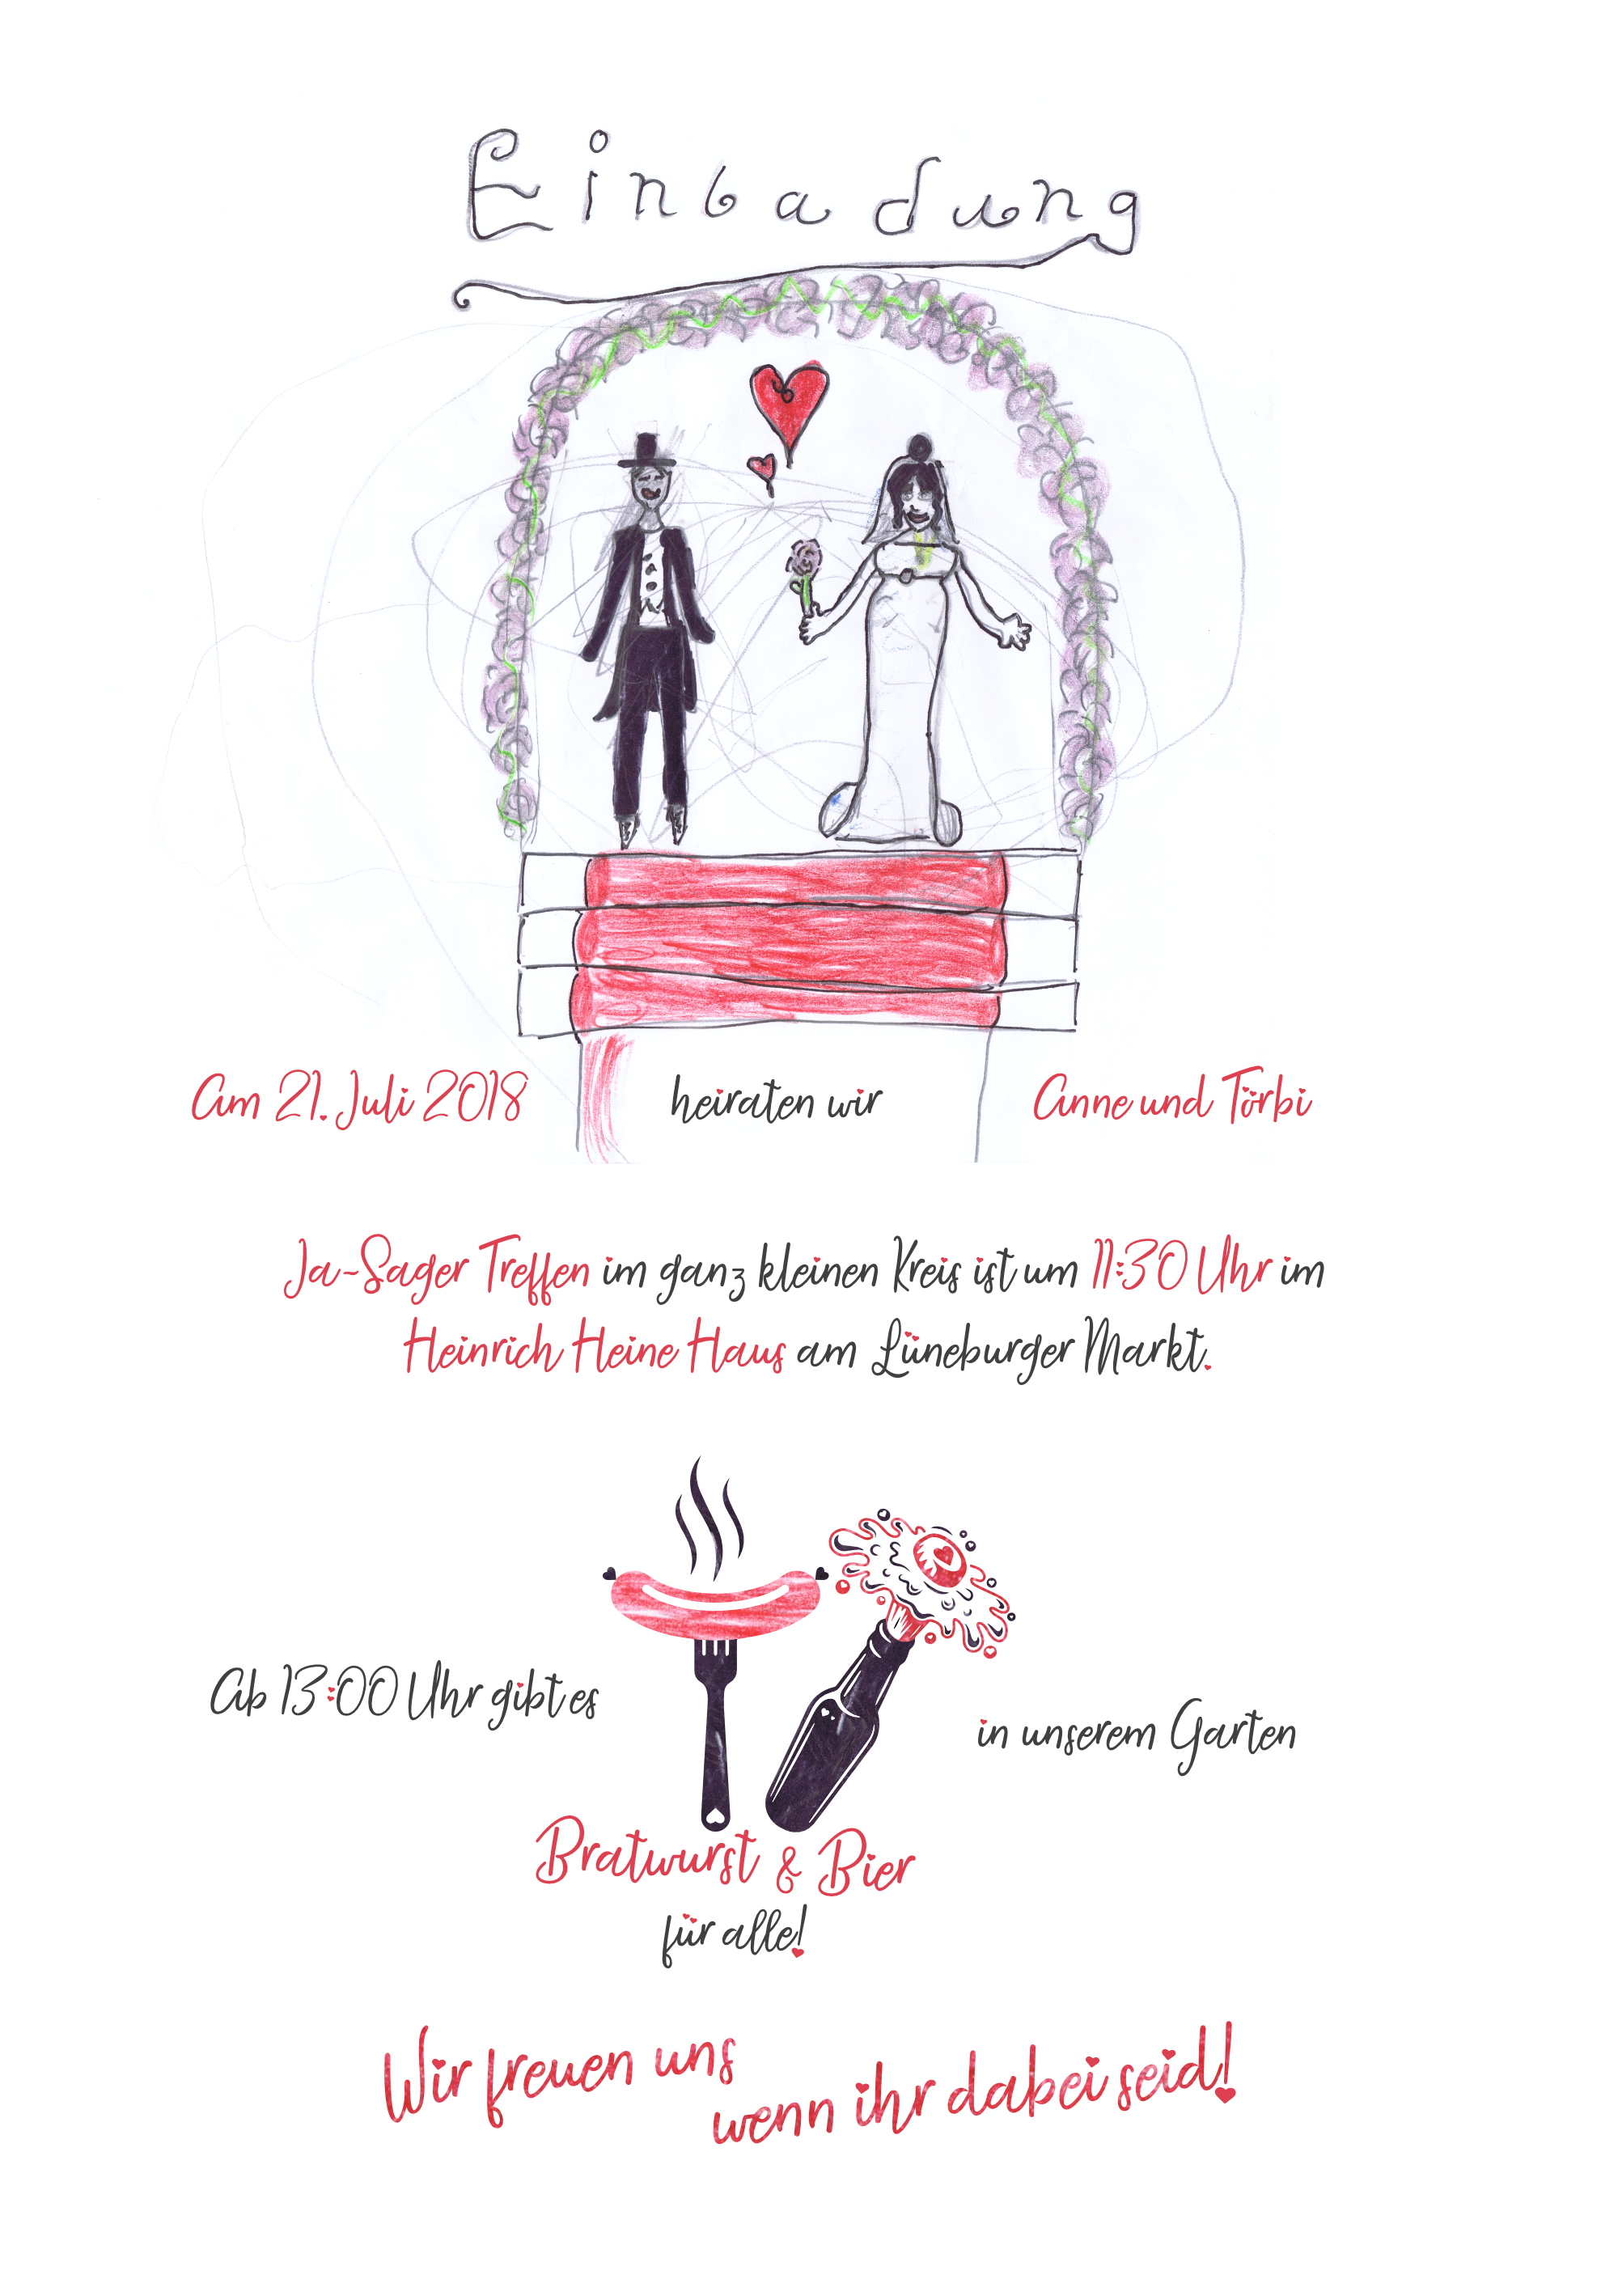 Einladung
Am 21. Juli 2018 heiraten wir Anne und Törbi
Ja-Sager Treffen im ganz kleinen Kreis ist um 11:30 Uhr im
Heinrich Heine Haus am Lüneburger Markt.
Ab 13:00 Uhr gibt es
Bratwurst & Bier
für alle!
in unserem Garten
Wir freuen uns
wenn ihr dabei seid!